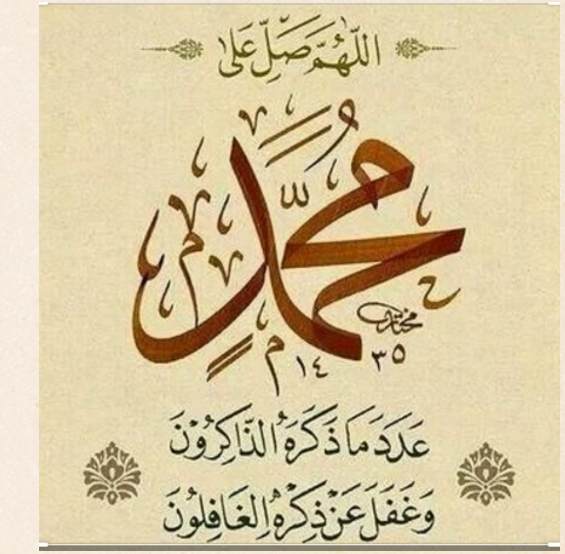 اللَّهُمَّ صَلِّ عَلَى
مُحَمَّدٍ
مختار
١٤٣٥
عَدَدَ مَا ذَكَرَهُ الذَّاكِرُوْنَ
وَغَفَلَ عَنْ ذِكْرِهِ الْغَافِلُونَ